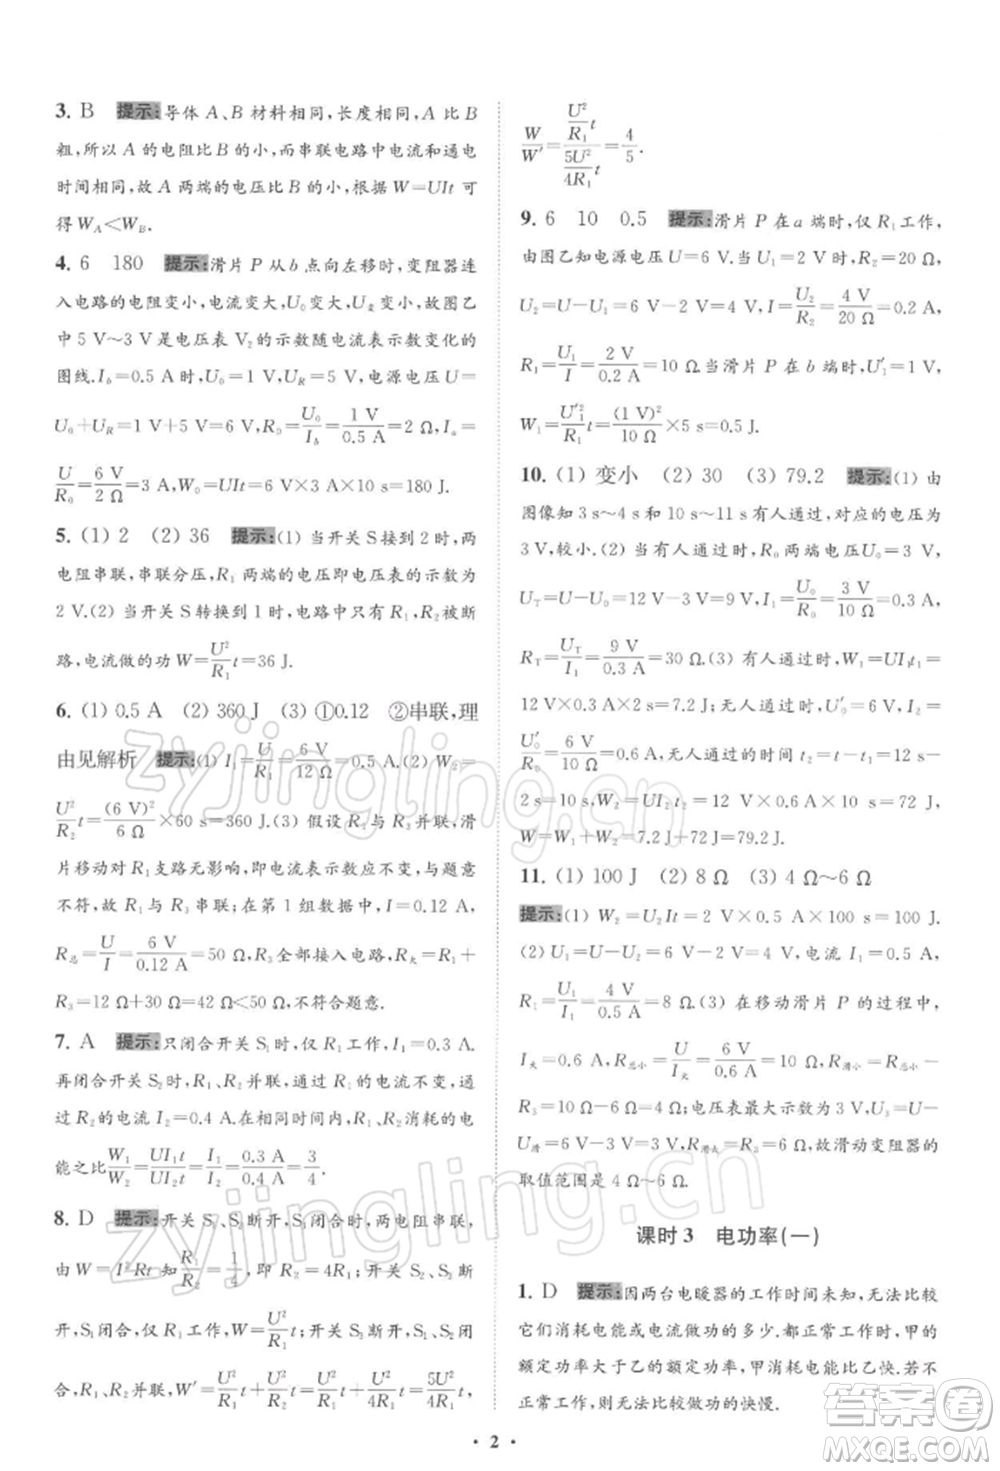 3. B 提示:导体 A、B 材料相同,长度相同,A 比 B
粗,所以 A 的电阻比 B 的小,而串联电路中电流和通电
时间相同,故 A 两端的电压比 B 的小,根据 W=UIt 可
得 W_A<W_B.
4. 6 180 提示:滑片 P 从 b 点向左移时,变阻器连
入电路的电阻变小,电流变大,U₀变大,U变小,故图乙
中 5 V~3 V 是电压表 V₂的示数随电流表示数变化的
图线.I_b=0.5 A时,U₀=1 V,U_R=5 V,电源电压 U=
U₀+U_R=1 V+5 V=6 V,R₀=U₀/I_b=1 V/0.5 A=2 Ω,I_a=
U/R₀=6 V/2 Ω=3 A,W₀=UIt=6 V×3 A×10 s=180 J.
5. (1) 2 (2) 36 提示:(1) 当开关 S 接到 2 时,两
电阻串联,串联分压,R₁ 两端的电压即电压表的示数为
2 V.(2) 当开关 S 转换到 1 时,电路中只有 R₁,R₂被断
路,电流做的功 W=U²/R₁ t=36 J.
6. (1) 0.5 A (2) 360 J (3) ①0.12 ②串联,理
由见解析 提示:(1) I₁=U/R₁=6 V/12 Ω=0.5 A.(2) W₂=
U²/R₂ t=(6 V)²/6 Ω×60 s=360 J.(3) 假设 R₂与 R₃并联,滑
片移动对 R₁支路无影响,即电流表示数应不变,与题意
不符,故 R₁与 R₃ 串联;在第 1 组数据中,I=0.12 A,
R总=U/I=6 V/0.12 A=50 Ω,R₃ 全部接入电路,R火=R₁+
R₃=12 Ω+30 Ω=42 Ω<50 Ω,不符合题意.
7. A 提示:只闭合开关 S₁时,仅 R₁工作,I₁=0.3 A.
再闭合开关 S₂时,R₁、R₂并联,通过 R₁的电流不变,通
过 R₂的电流 I₂=0.4 A.在相同时间内,R₁、R₂消耗的电
能之比W₁/W₂=UI₁t/UI₂t=I₁/I₂=0.3 A/0.4 A=3/4.
8. D 提示:开关 S₁、S₂断开,S闭合时,两电阻串联,
由 W=I²Rt 知R₁/R₂=1/4,即 R₂=4R₁;开关 S、S₂断
开,S₁闭合,仅 R₁工作,W=U²/R₁ t;开关 S断开,S₁、S₂闭
合,R₁、R₂并联,W′=U²/R₁ t+U²/R₂ t=U²/R₁ t+U²/4R₁ t=5U²/4R₁ t,
W/W′=(U²/R₁ t)/(5U²/4R₁ t)=4/5.
9. 6 10 0.5 提示:滑片 P 在 a 端时,仅 R₁工作,
由图乙知电源电压 U=6 V.当 U₁=2 V时,R₂=20 Ω,
U₂=U-U₁=6 V-2 V=4 V,I=U₂/R₂=4 V/20 Ω=0.2 A,
R₁=U₁/I=2 V/0.2 A=10 Ω.当滑片 P 在 b 端时,U′₁=1 V,
W₁=U′₁²/R₁ t=(1 V)²/10 Ω×5 s=0.5 J.
10. (1) 变小 (2) 30 (3) 79.2 提示:(1) 由
图像知 3 s~4 s 和 10 s~11 s 有人通过,对应的电压为
3 V,较小.(2) 有人通过时,R₀两端电压U₀=3 V,
U_T=U-U₀=12 V-3 V=9 V,I₁=U₀/R₀=3 V/10 Ω=0.3 A,
R_T=U_T/I₁=9 V/0.3 A=30 Ω.(3) 有人通过时,W₁=UI₁t₁=
12 V×0.3 A×2 s=7.2 J;无人通过时,U′₀=6 V,I₂=
U′₀/R₀=6 V/10 Ω=0.6 A,无人通过的时间 t₂=t-t₁=12 s-
2 s=10 s,W₂=UI₂t₂=12 V×0.6 A×10 s=72 J,
W=W₁+W₂=7.2 J+72 J=79.2 J.
11. (1) 100 J (2) 8 Ω (3) 4 Ω~6 Ω
提示:(1) W₂=U₂It=2 V×0.5 A×100 s=100 J.
(2) U₁=U-U₂=6 V-2 V=4 V,电流 I₁=0.5 A,
R₁=U₁/I₁=4 V/0.5 A=8 Ω.(3) 在移动滑片 P 的过程中,
I火=0.6 A,R总小=U/I火=6 V/0.6 A=10 Ω,R滑小=R总小-
R₃=10 Ω-6 Ω=4 Ω;电压表最大示数为 3 V,U₃=U-
U滑=6 V-3 V=3 V,R滑大=R₃=6 Ω,故滑动变阻器的
取值范围为 4 Ω~6 Ω.
课时 3 电功率(一)
1. D 提示:因两台电暖器的工作时间未知,无法比较
它们消耗电能或电流做功的多少.都正常工作时,甲的
额定功率大于乙的额定功率,甲消耗电能比乙快.若不
正常工作,则无法比较做功的快慢.
· 2 ·
zyjingling.cn
zyjingling.cn
答案卷
MXQE.COM